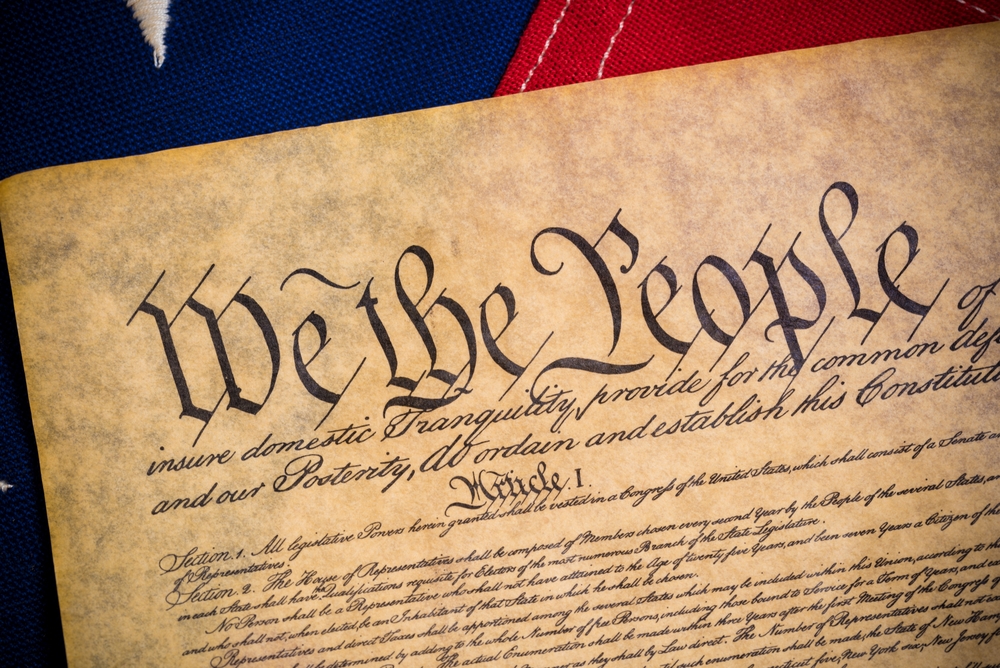 We the People of
insure domestic Tranquility, provide for the common def
and our Posterity, do ordain and establish this Constitut
Article. I.
Section. 1. All legislative Powers herein granted shall be vested in a Congress of the United States, which shall consist of a Senate a
of Representatives.
Section. 2. The House of Representatives shall be composed of Members chosen every second Year by the People of the several States, a
in each State shall have the Qualifications requisite for Electors of the most numerous Branch of the State Legislature.
No Person shall be a Representative who shall not have attained to the Age of twenty five Years, and been seven Years a Citizen of the
and who shall not, when elected, be an Inhabitant of that State in which he shall be chosen.
Representatives and direct Taxes shall be apportioned among the several States which may be included within this Union, according to
shall be determined by adding to the whole Number of free Persons, including those bound to Service for a Term of Years, and
The actual Enumeration shall be made within three Years after the first Meeting of the Congress of
as they shall by Law direct. The Number of Representatives shall not
such enumeration shall be made, the State of New Ham
five, New York six, New Jersey